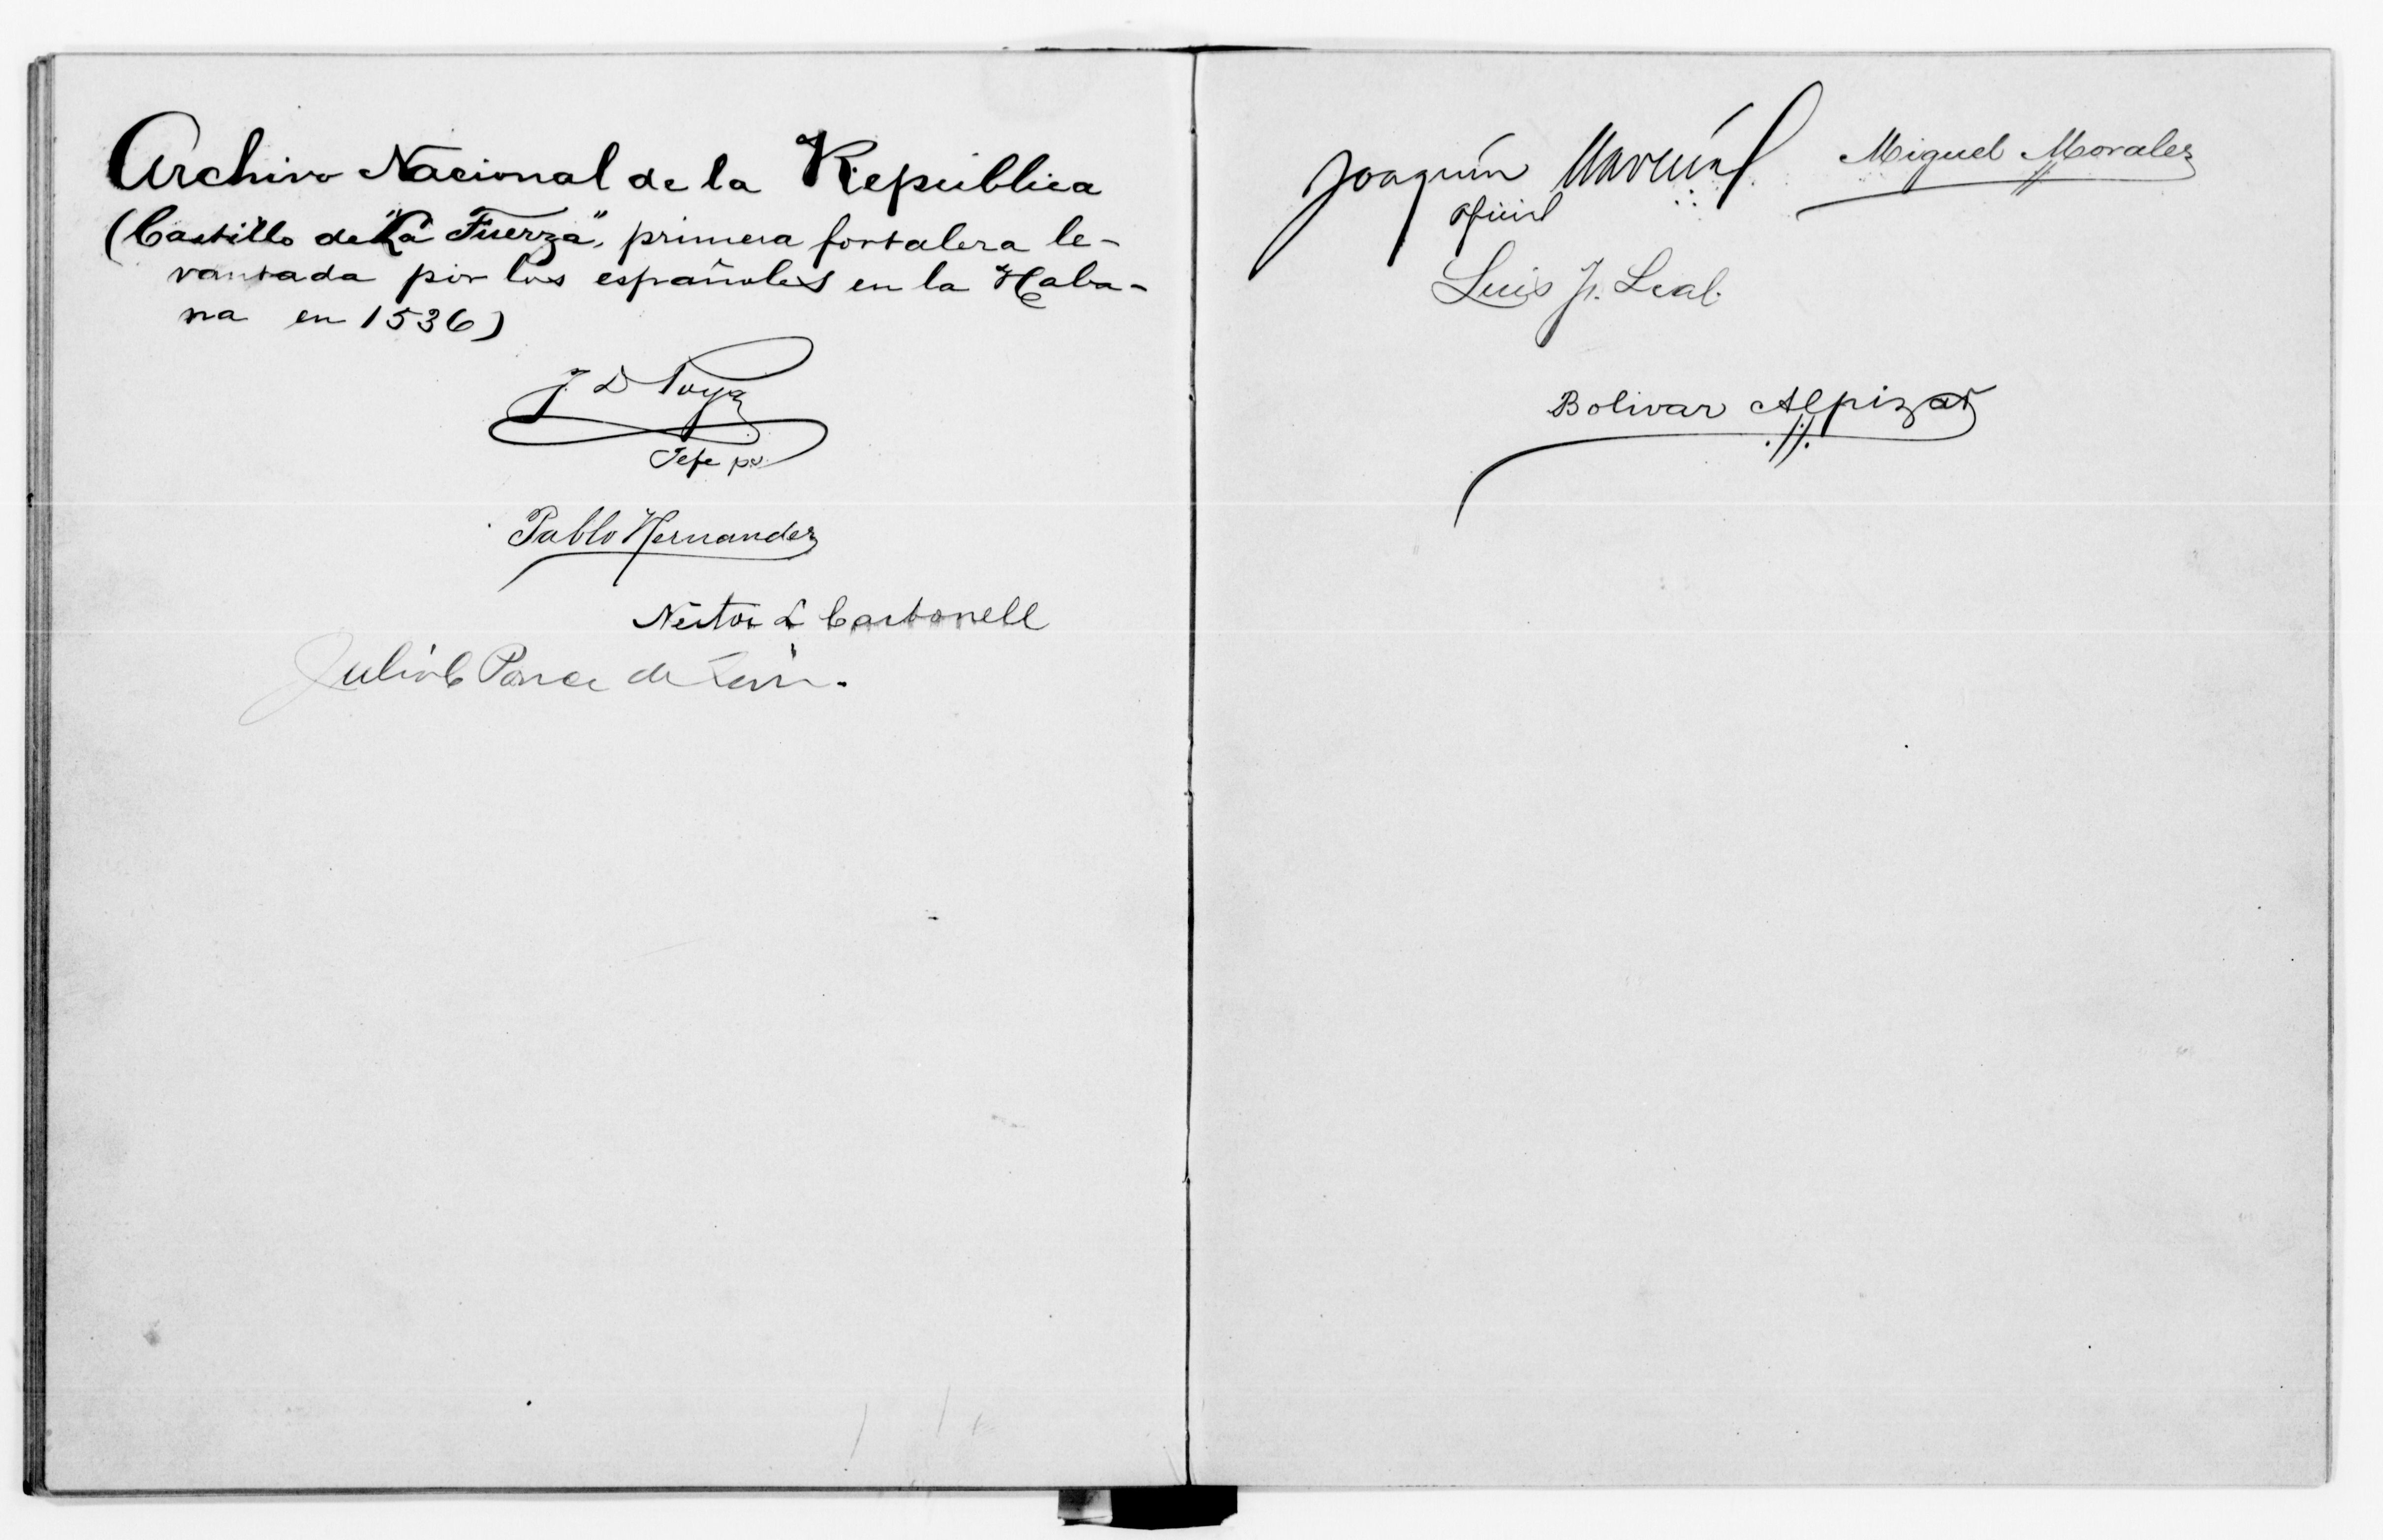 Archivo Nacional de la República
(Castillo de "La Fuerza", primera fortaleza le-
vantada por los españoles en la Haba-
na en 1536)
J. D Poyo
Jefe
Pablo Hernandez
Néstor L Carbonell
Julio C Ponce de León.
Joaquín
Miguel Morales
Oficial
Luis F. Leal.
Bolivar Alpizar